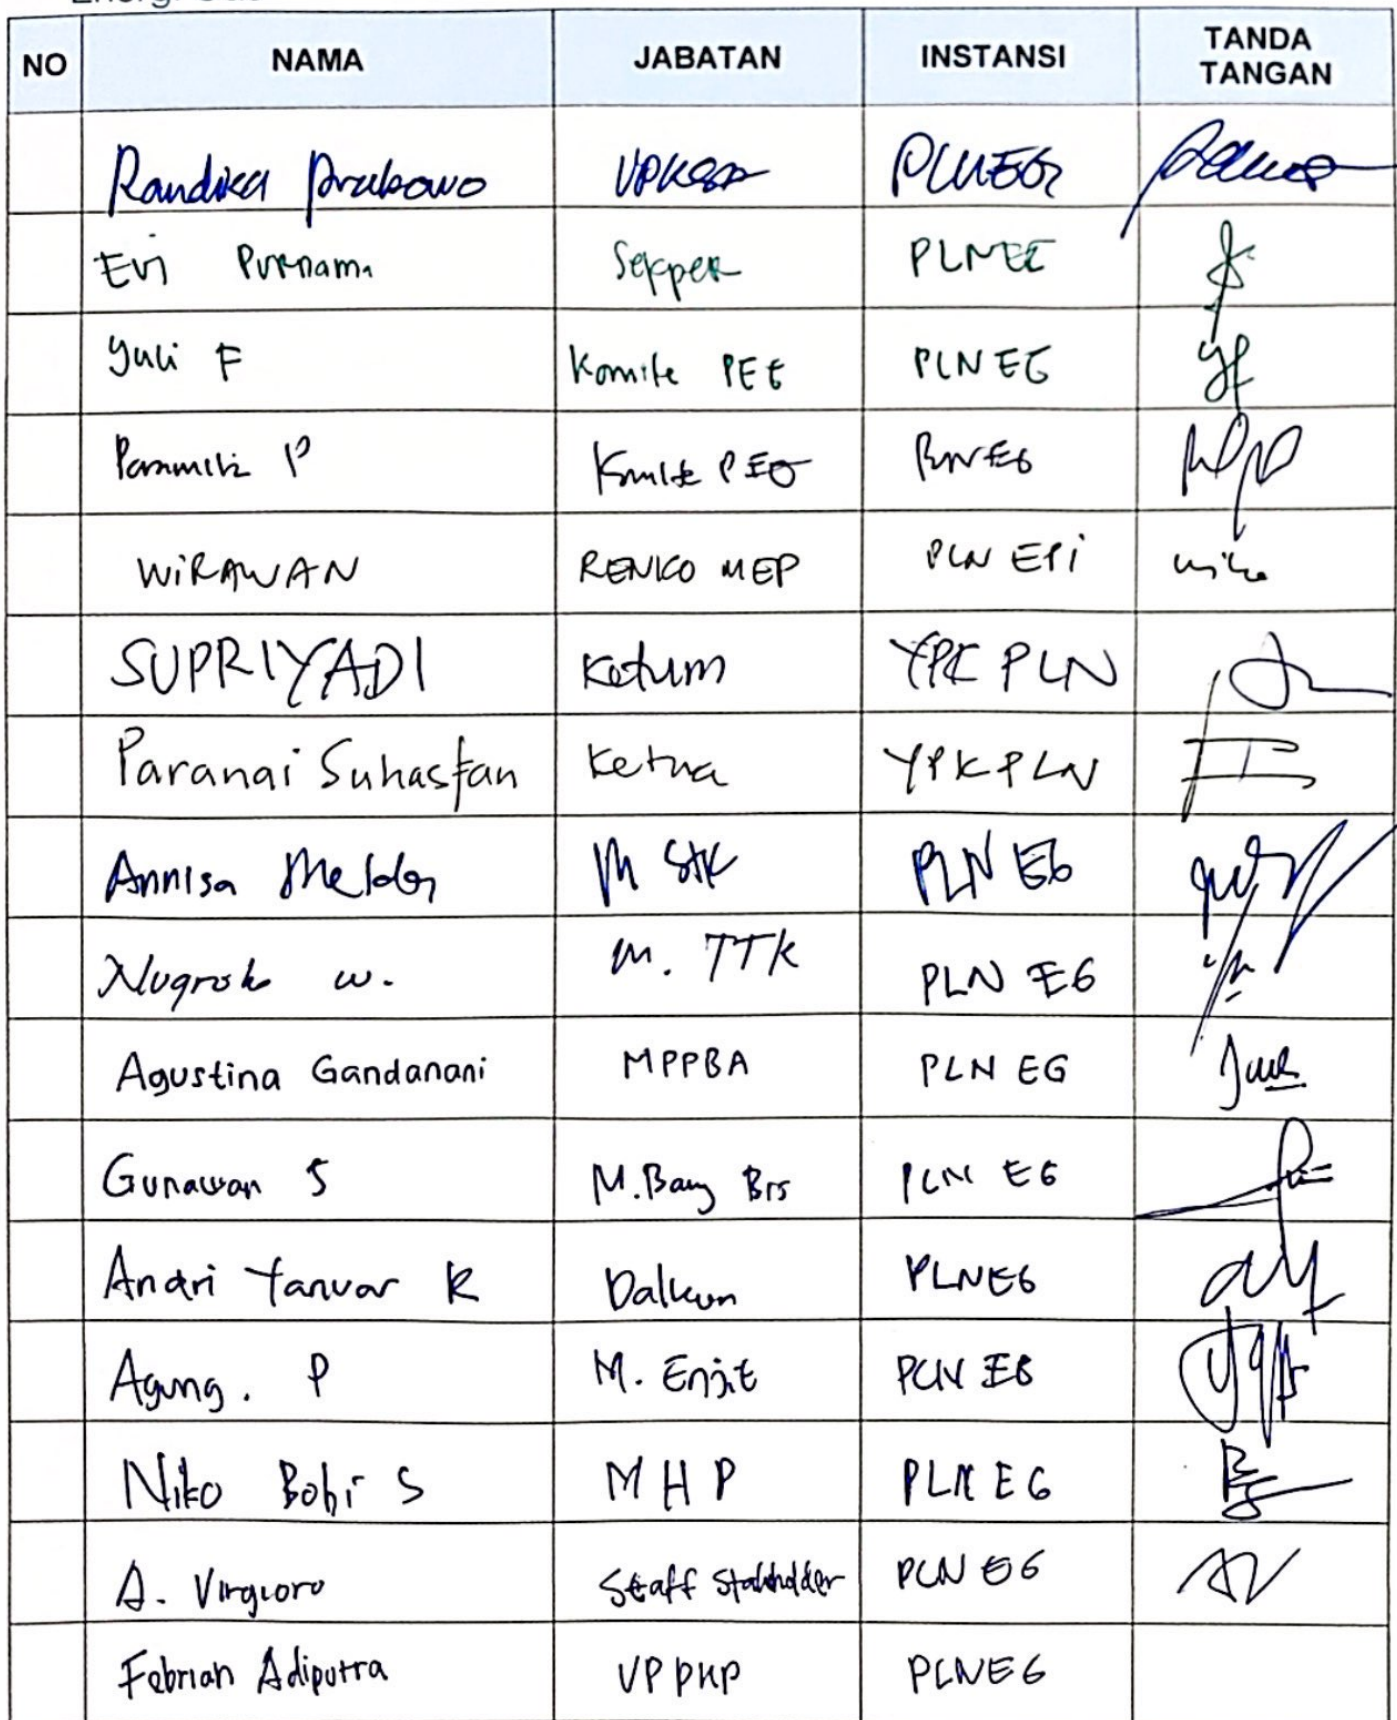 NO NAMA JABATAN INSTANSI TANDA TANGAN
Randika Prabowo PLNEG
Evi Purnama Sekper PLNEG
Yuli F Komite PEG PLN EG
P Komite PEG PLNEG
WIRAWAN RENKO MEP PLN EPI
SUPRIYADI Ketum YPK PLN
Paranai Suhasfan Ketua YPKPLN
Annisa M StK PLN EG
Nugroho w. M. TTK PLN EG
Agustina Gandanani MPPBA PLN EG
Gunawan S M.Bang Brs PLN EG
Andri Yanuar R Dalkon PLNEG
Agung. P M. Enjit PLN EG
Niko Bobi S MHP PLN EG
A. Virgioro Staff Stakeholder PLN EG
Febrian Adiputra VP PKP PLNEG